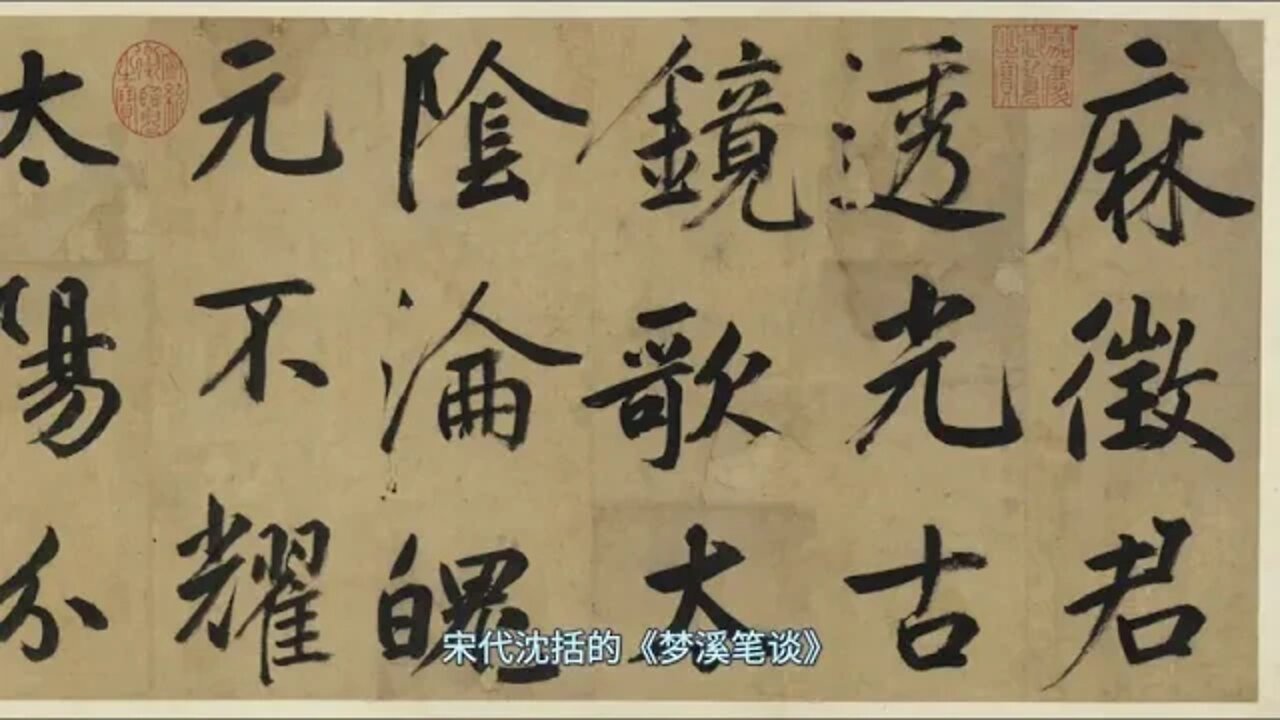 麻徵君
透光古
鏡歌太
陰淪魄
元不耀
太陽分
宋代沈括的《梦溪笔谈》